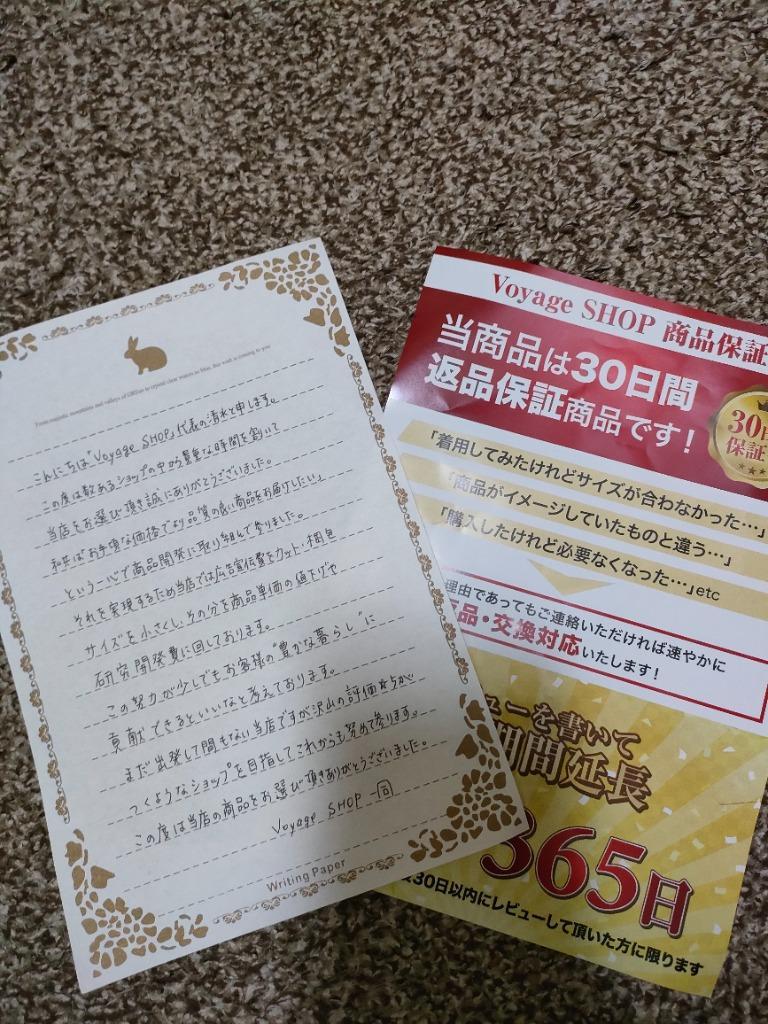 From majestic mountains and valleys of
こんにちは"Voyage SHOP"代表の清水と申します。
この度は数あるショップの中から貴重な時間を割いて
当店をお選び頂き誠にありがとうございました。
私共は"お手頃な価格でより品質の良い商品をお届けしたい"
という一心で商品開発に取り組んで参りました。
それを実現するため当店では広告宣伝費をカット・梱包
サイズを小さくし、その分を商品単価の値下げや
研究開発費に回しております。
この努力が少しでもお客様の"豊かな暮らし"に
貢献できるといいなと考えております。
まだ出発して間もない当店ですが沢山の評価★5がつ
くようなショップを目指してこれからも努めて参ります。
この度は当店の商品をお選び頂きありがとうございました。
Voyage SHOP 一同
Writing Paper
Voyage SHOP 商品保証
当商品は30日間
返品保証商品です!
30日
保証
「着用してみたけれどサイズが合わなかった…」
「商品がイメージしていたものと違う…」
「購入したけれど必要なくなった…」etc
理由であってもご連絡いただければ速やかに
品・交換対応いたします!
ューを書いて
期間延長
365日
30日以内にレビューして頂いた方に限ります